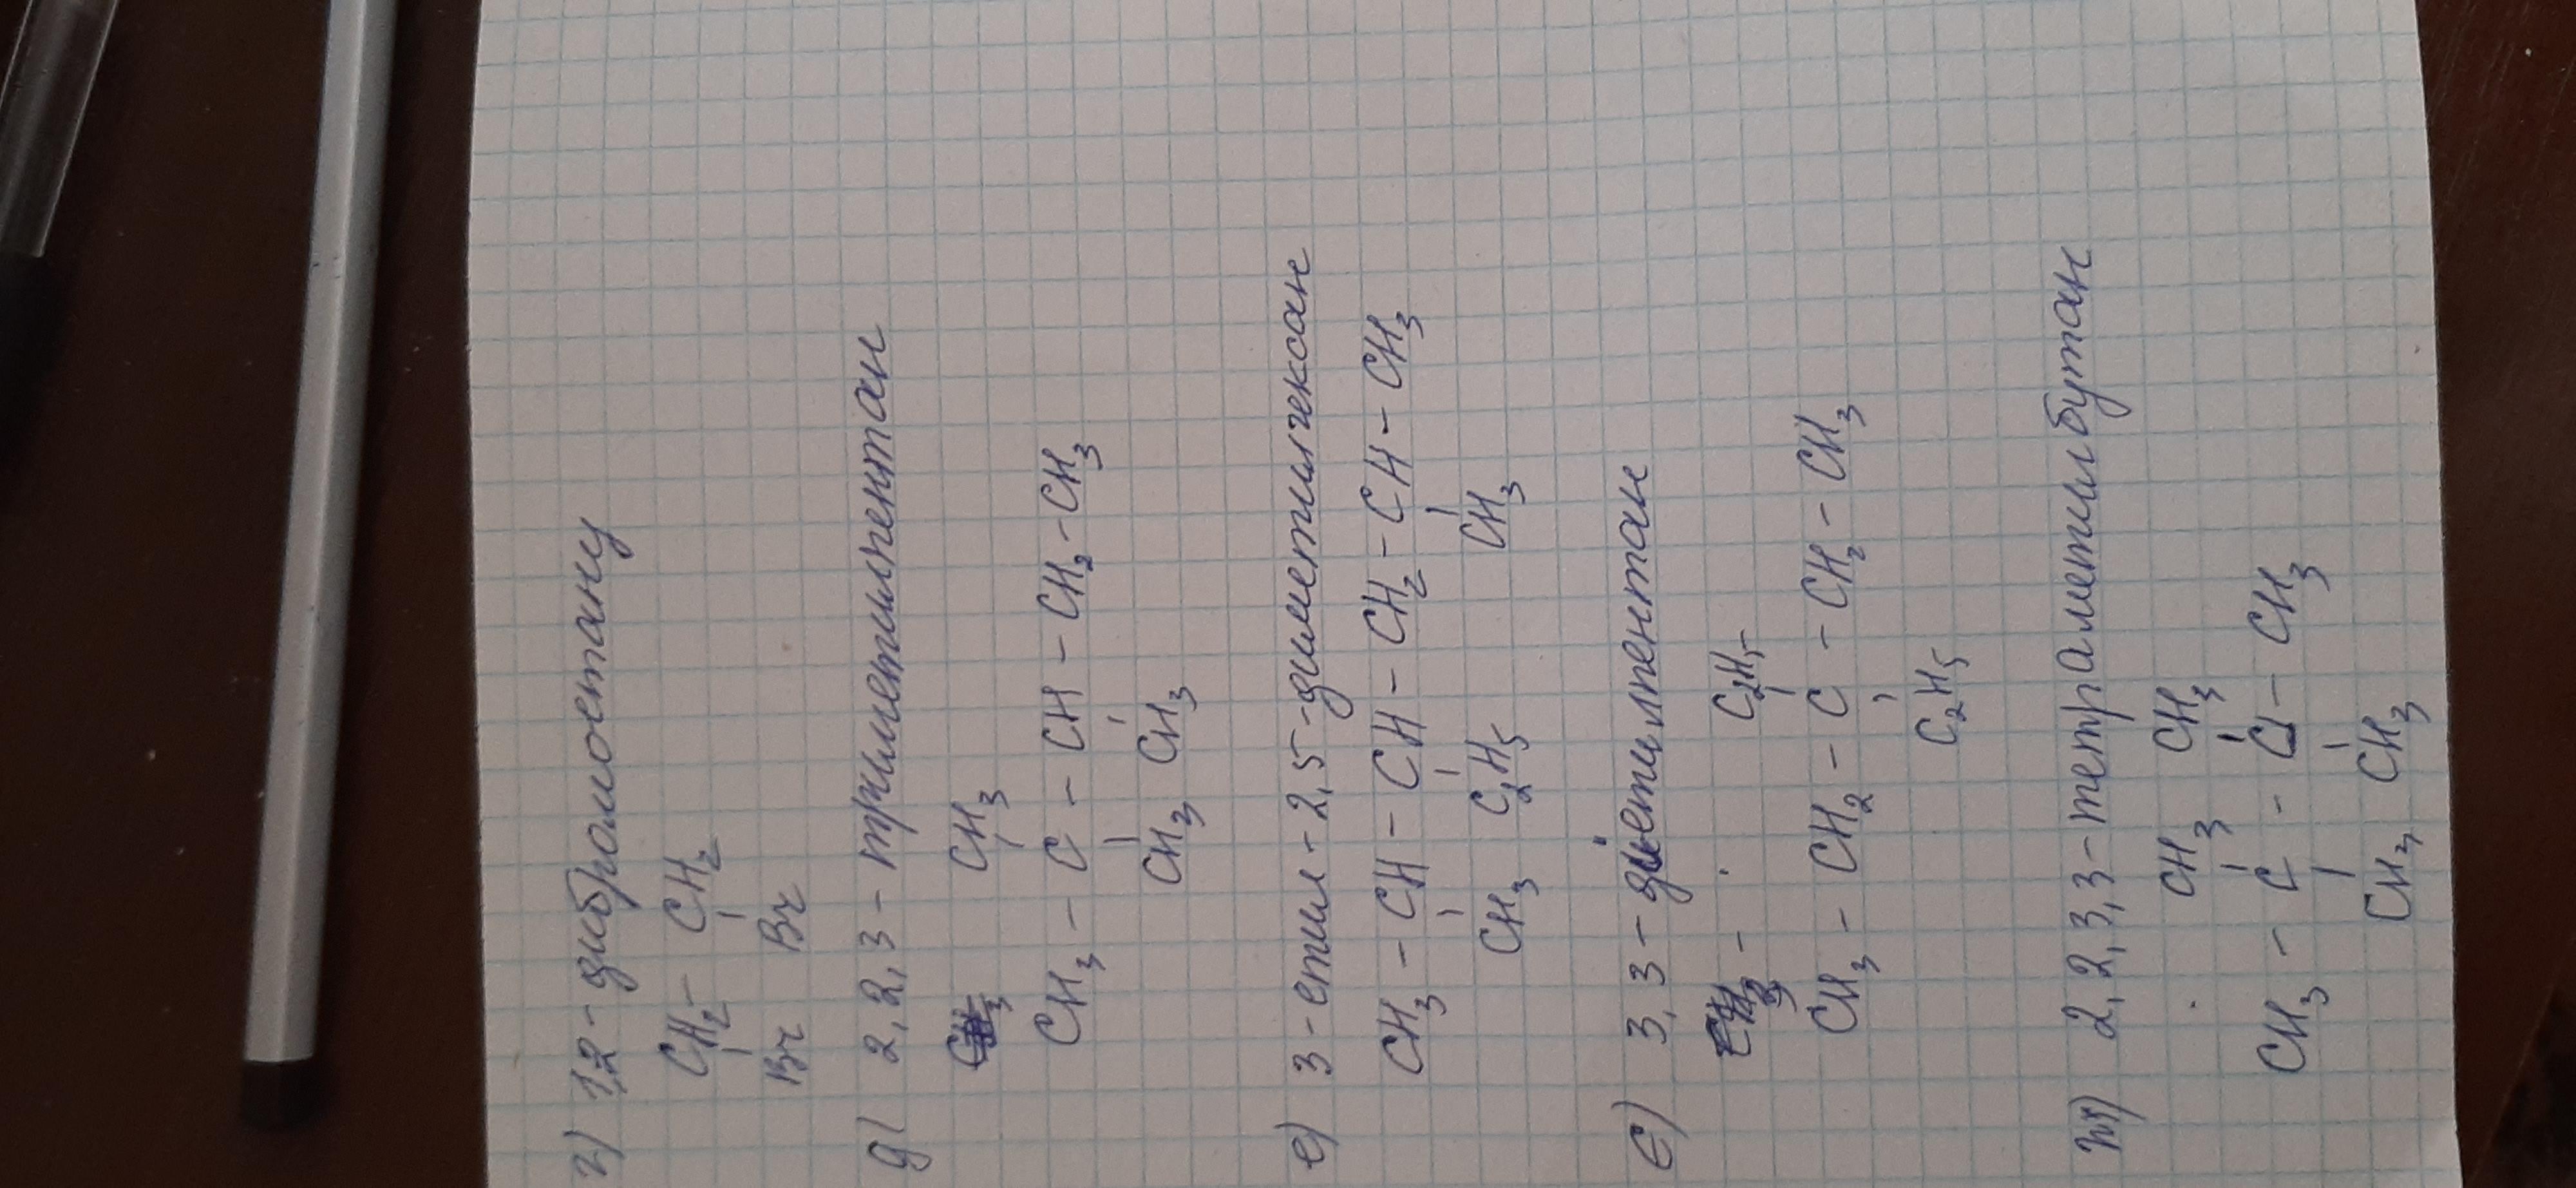 г) 1,2-дибромоетану
CH₂ - CH₂
Br Br
д) 2,2,3-триметилпентан
CH₃
CH₃ - C - CH - CH₂ - CH₃
CH₃ CH₃
е) 3-етил-2,5-диметилгексан
CH₃ - CH - CH - CH₂ - CH - CH₃
CH₃ C₂H₅ CH₃
є) 3,3-диетилпентан
C₂H₅
CH₃ - CH₂ - C - CH₂ - CH₃
C₂H₅
ж) 2,2,3,3-тетраметилбутан
CH₃ CH₃
CH₃ - C - C - CH₃
CH₃ CH₃